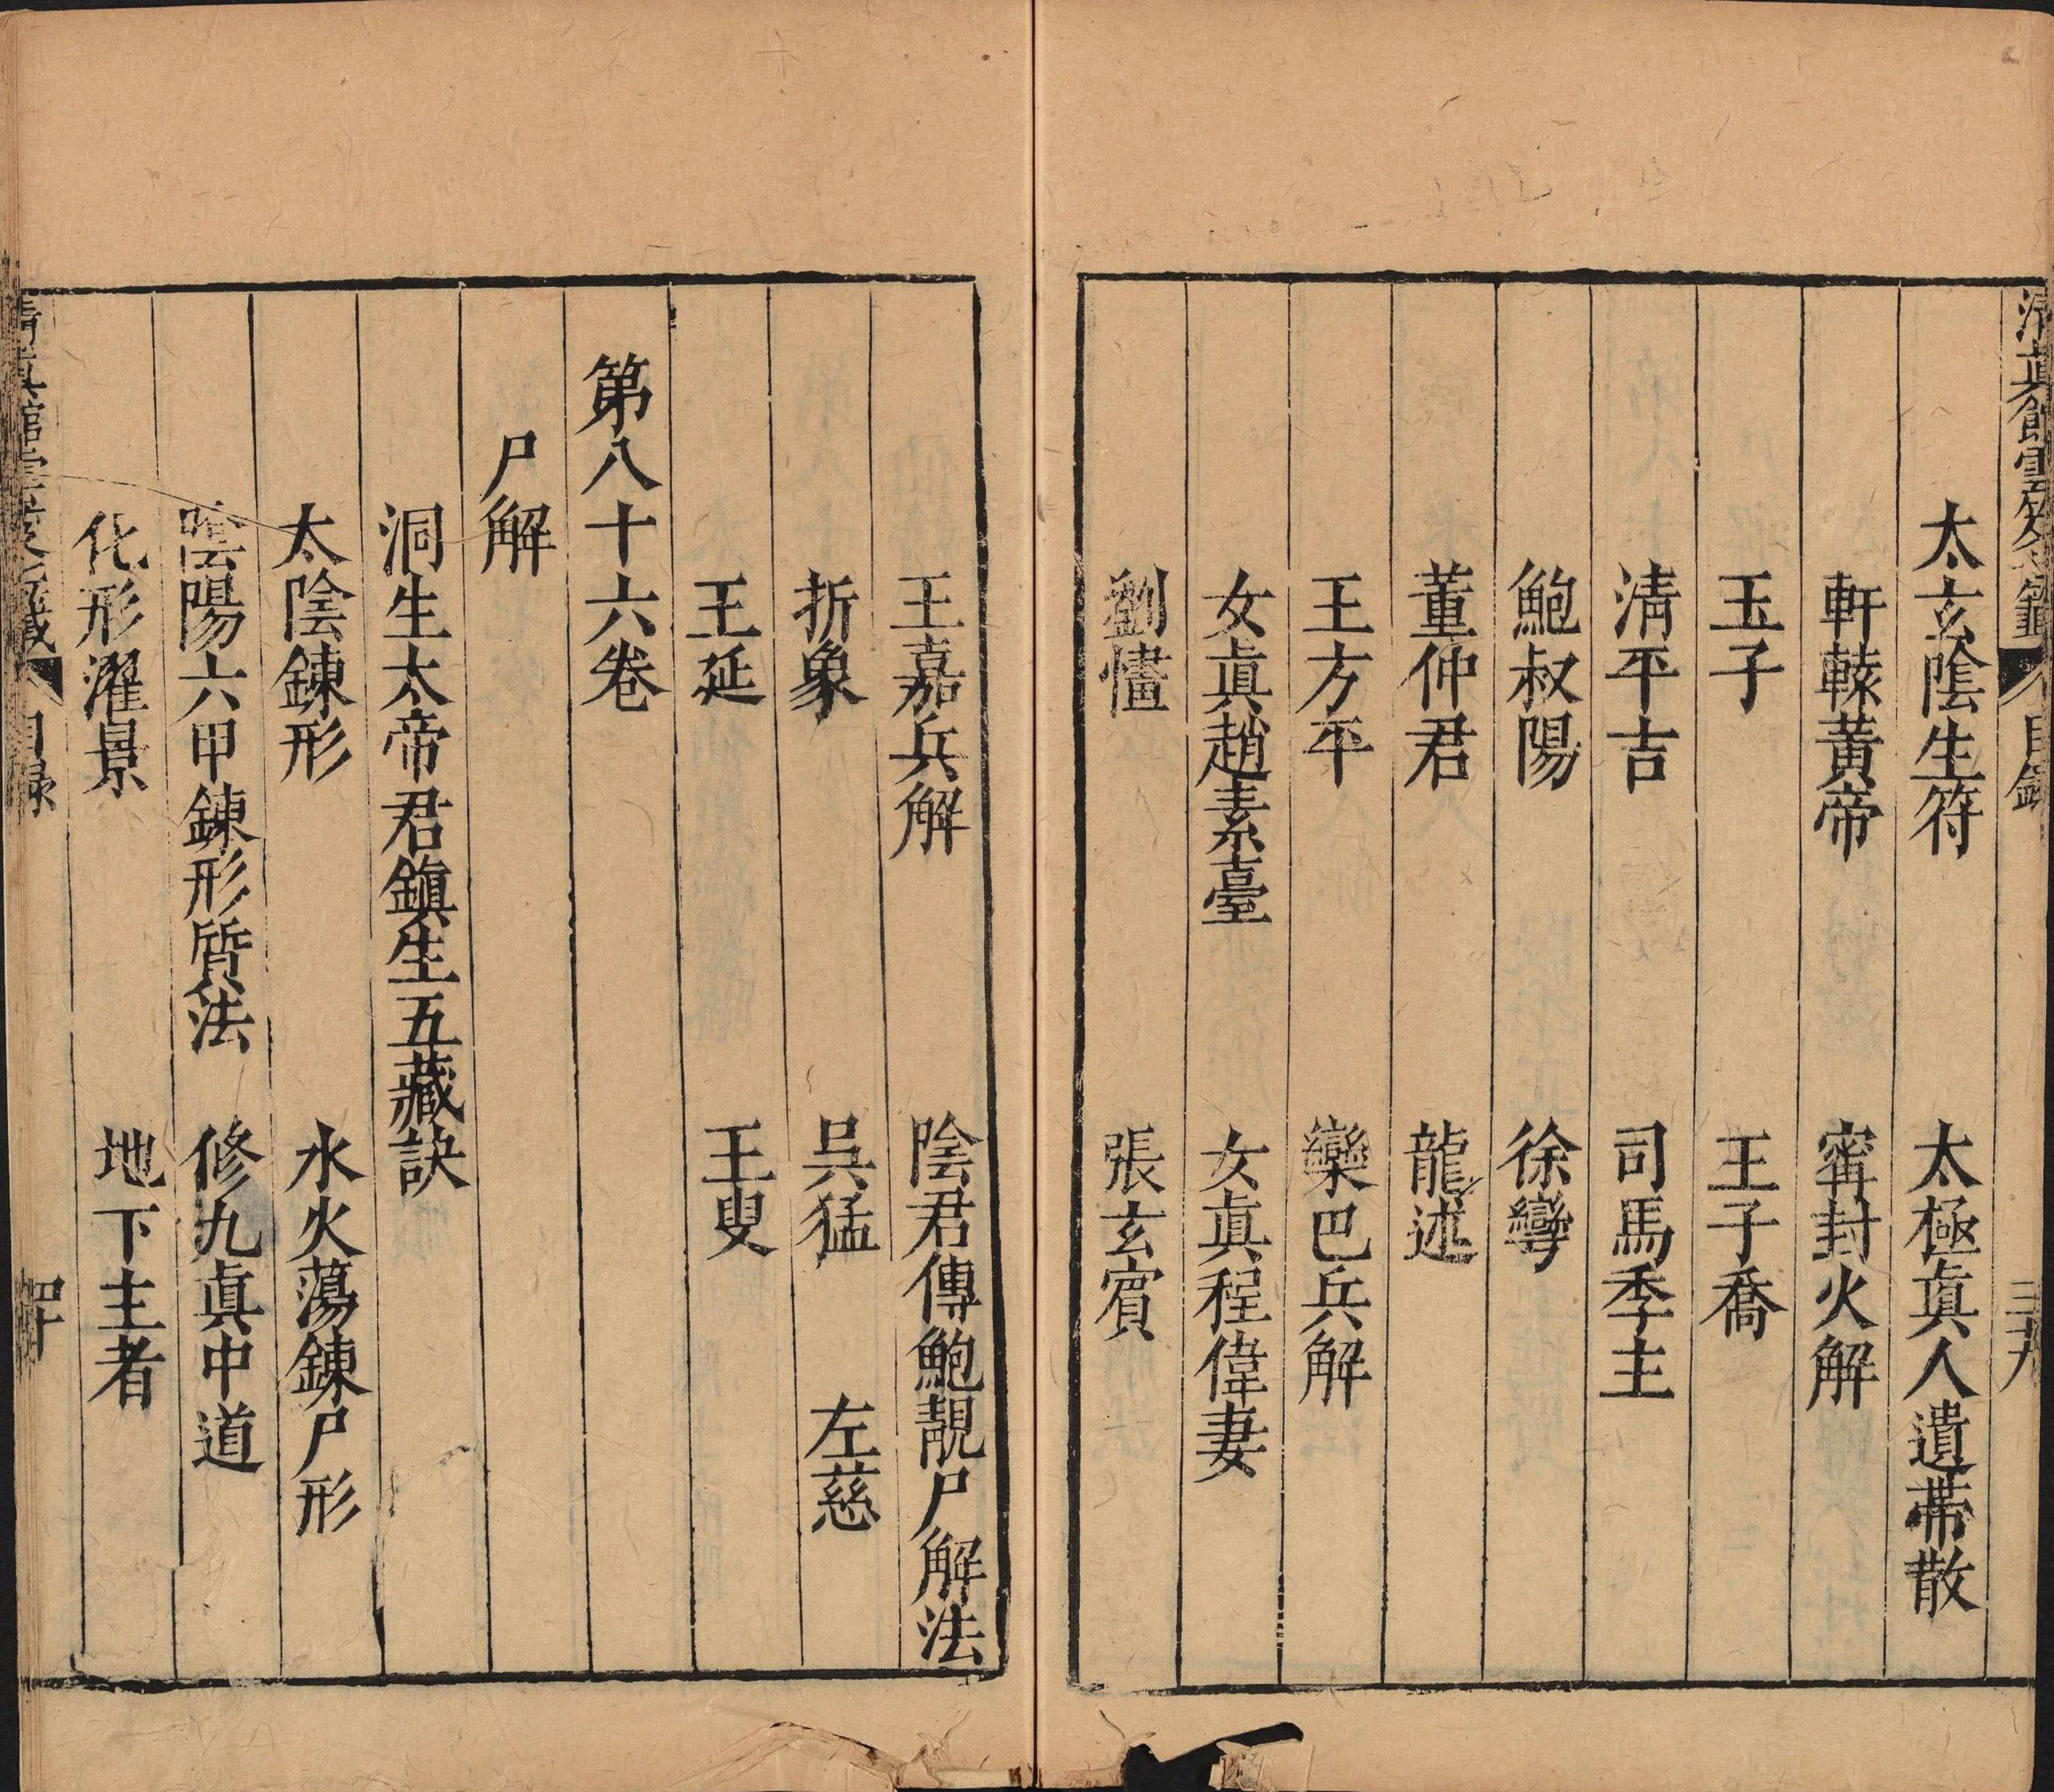 清真館雲笈七籤 目錄 三十九
太玄陰生符 太極眞人遺帶散
軒轅黃帝 甯封火解
玉子 王子喬
淸平吉 司馬季主
鮑叔陽 徐彎
董仲君 龍述
王方平 欒巴兵解
女眞趙素臺 女眞程偉妻
劉𢠢 張玄賓
王嘉兵解 陰君傳鮑靚尸解法
折象 吳猛 左慈
王延 王叟
第八十六卷
尸解
洞生太帝君鎭生五藏訣
太陰鍊形 水火蕩鍊尸形
陰陽六甲鍊形質法 修九眞中道
化形濯景 地下主者
清真館雲笈七籤 目録